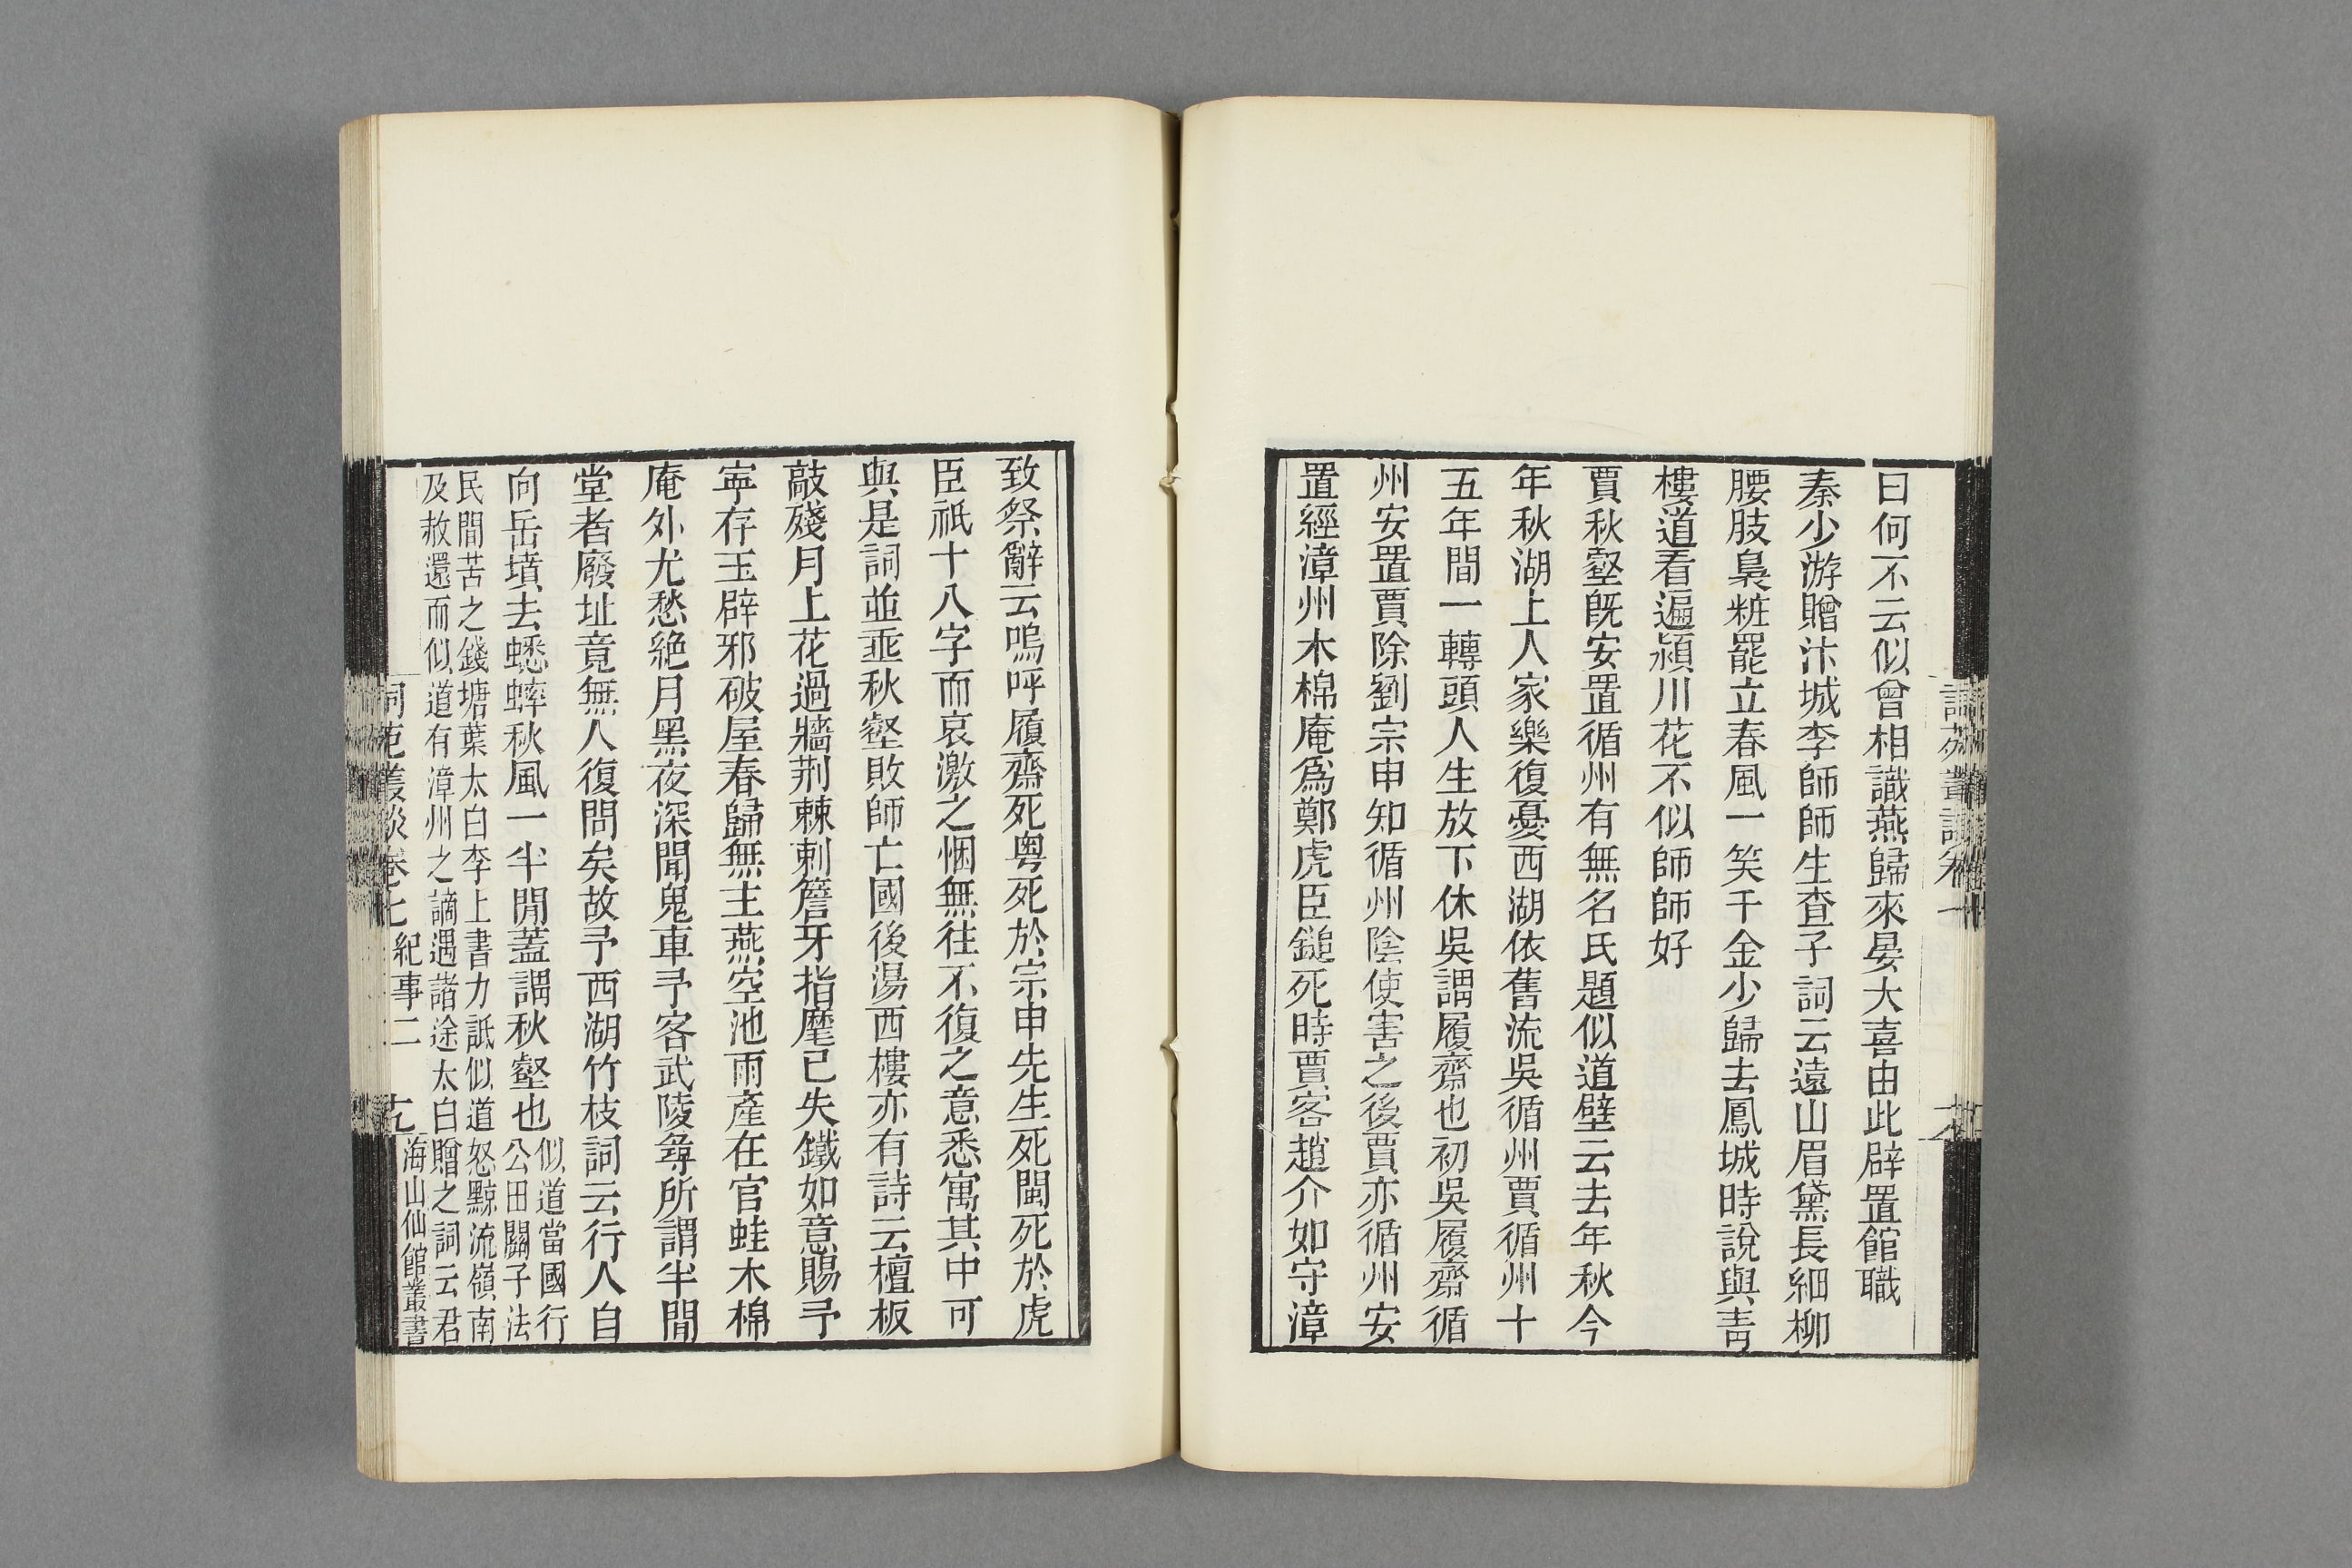 曰何不云似曾相識燕歸來晏大喜由此辟置館職
秦少游贈汴城李師師生查子詞云遠山眉黛長細柳
腰肢裊粧罷立春風一笑千金少歸去鳳城時說與青
樓道看遍潁川花不似師師好
賈秋壑旣安置循州有無名氏題似道壁云去年秋今
年秋湖上人家樂復憂西湖依舊流吳循州賈循州十
五年間一轉頭人生放下休吳謂履齋也初吳履齋循
州安置賈除劉宗申知循州陰使害之後賈亦循州安
置經漳州木棉庵爲鄭虎臣鎚死時賈客趙介如守漳
致祭辭云嗚呼履齋死粤死於宗申先生死閩死於虎
臣祇十八字而哀激之悃無徃不復之意悉寓其中可
與是詞並埀秋壑敗師亡國後湯西樓亦有詩云檀板
敲殘月上花過牆荆棘刺簷牙指麾已失鐵如意賜予
寧存玉辟邪破屋春歸無主燕空池雨產在官蛙木棉
庵外尤愁絶月黑夜深聞鬼車予客武陵尋所謂半閒
堂者廢址竟無人復問矣故予西湖竹枝詞云行人自
向岳墳去蟋蟀秋風一半閒蓋謂秋壑也
似道當國行
公田關子法
民間苦之錢塘葉太白李上書力詆似道怒黥流嶺南
及赦還而似道有漳州之謫遇諸途太白贈之詞云君
詞苑叢談卷七 紀事二 十九 海山仙館叢書